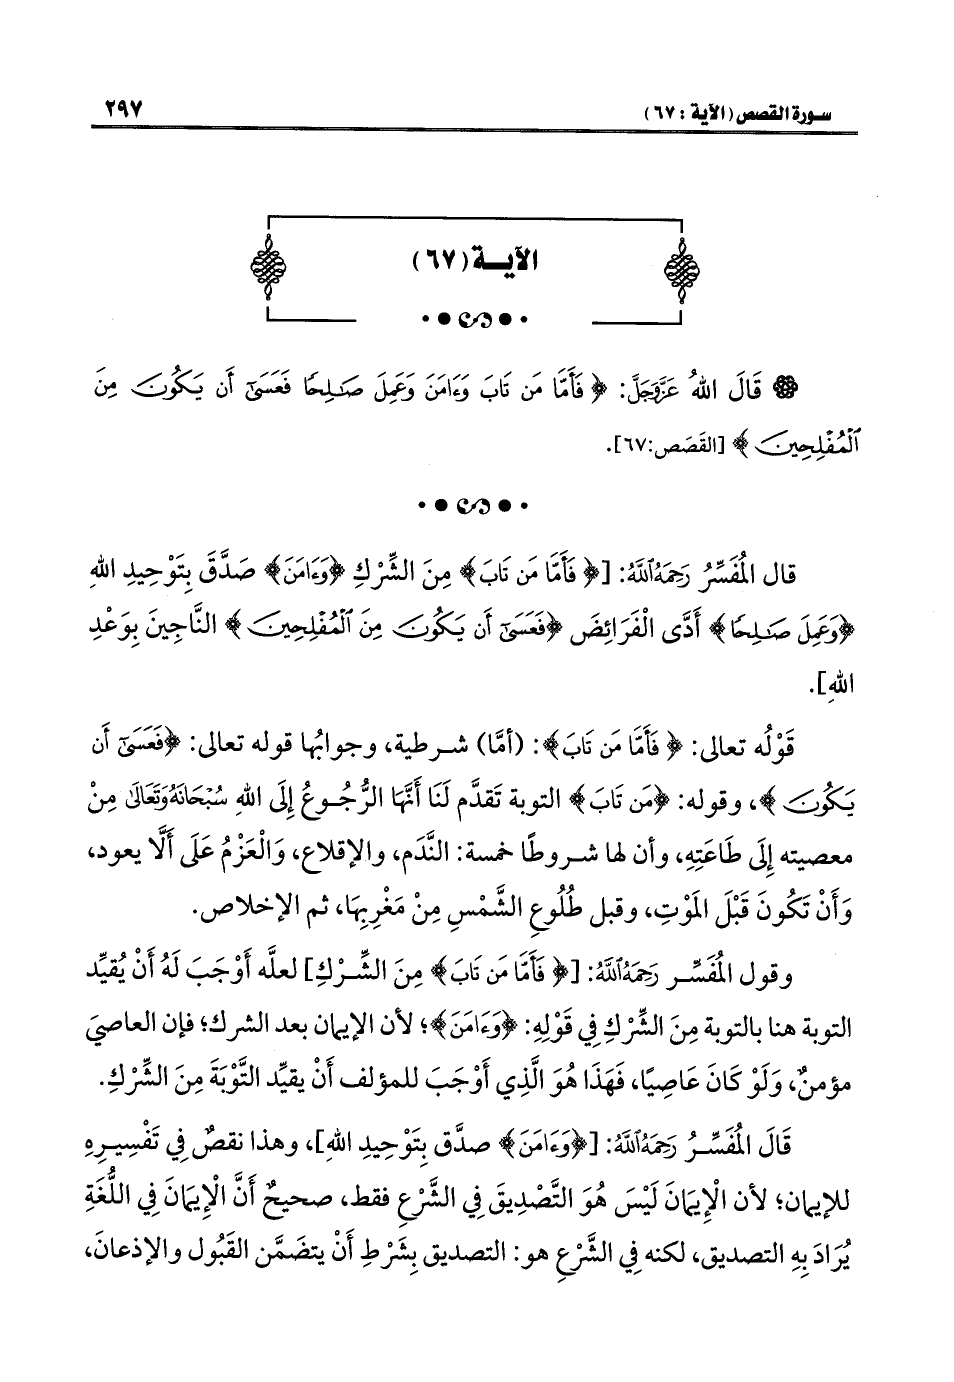 سورة القصص (الآية : ٦٧) ٢٩٧
الآيــة (٦٧)
قَالَ اللهُ عَزَّوَجَلَّ: ﴿ فَأَمَّا مَن تَابَ وَءَامَنَ وَعَمِلَ صَٰلِحًا فَعَسَىٰٓ أَن يَكُونَ مِنَ
ٱلْمُفْلِحِينَ ﴾ [القَصَص:٦٧].
قال المُفَسِّرُ رَحِمَهُ ٱللَّهُ: [﴿ فَأَمَّا مَن تَابَ﴾ مِنَ الشِّرْكِ ﴿وَءَامَنَ﴾ صَدَّقَ بِتَوْحِيدِ اللهِ
﴿وَعَمِلَ صَٰلِحًا﴾ أَدَّى الْفَرَائِضَ ﴿فَعَسَىٰٓ أَن يَكُونَ مِنَ ٱلْمُفْلِحِينَ ﴾ النَّاجِينَ بِوَعْدِ
اللهِ].
قَوْلُه تعالى: ﴿ فَأَمَّا مَن تَابَ﴾: (أمَّا) شرطية، وجوابُها قوله تعالى: ﴿فَعَسَىٰٓ أَن
يَكُونَ ﴾، وقوله: ﴿مَن تَابَ﴾ التوبة تَقدَّم لَنَا أَنَّهَا الرُّجُوعُ إِلَى اللهِ سُبْحَانَهُ وَتَعَالَى مِنْ
معصيته إِلَى طَاعَتِهِ، وأن لها شروطًا خمسة: النَّدَم، والإقلاع، وَالْعَزْمُ عَلَى أَلَّا يعود،
وَأَنْ تَكُونَ قَبْلَ المَوْتِ، وقبل طُلُوعِ الشَّمْسِ مِنْ مَغْرِبِهَا، ثم الإخلاص.
وقول المُفَسِّر رَحِمَهُ ٱللَّهُ: [﴿ فَأَمَّا مَن تَابَ﴾ مِنَ الشِّرْكِ] لعلَّه أَوْجَبَ لَهُ أَنْ يُقيِّد
التوبة هنا بالتوبة مِنَ الشِّرْكِ فِي قَوْلِهِ: ﴿وَءَامَنَ﴾؛ لأن الإيمان بعد الشرك؛ فإن العاصيَ
مؤمنٌ، وَلَوْ كَانَ عَاصِيًا، فَهَذَا هُوَ الَّذِي أَوْجَبَ للمؤلف أَنْ يقيِّد التَّوْبَةَ مِنَ الشِّرْكِ.
قَالَ المُفَسِّرُ رَحِمَهُ ٱللَّهُ: [﴿وَءَامَنَ﴾ صدَّق بِتَوْحِيدِ اللهِ]، وهذا نقصٌ فِي تَفْسِيرِهِ
للإيمان؛ لأن الْإِيمَانَ لَيْسَ هُوَ التَّصْدِيقَ فِي الشَّرْعِ فقط، صحيحٌ أَنَّ الْإِيمَانَ فِي اللُّغَةِ
يُرَادَ بِهِ التصديق، لكنه فِي الشَّرْعِ هو: التصديق بِشَرْطِ أَنْ يتضمَّن القَبُول والإذعانَ،